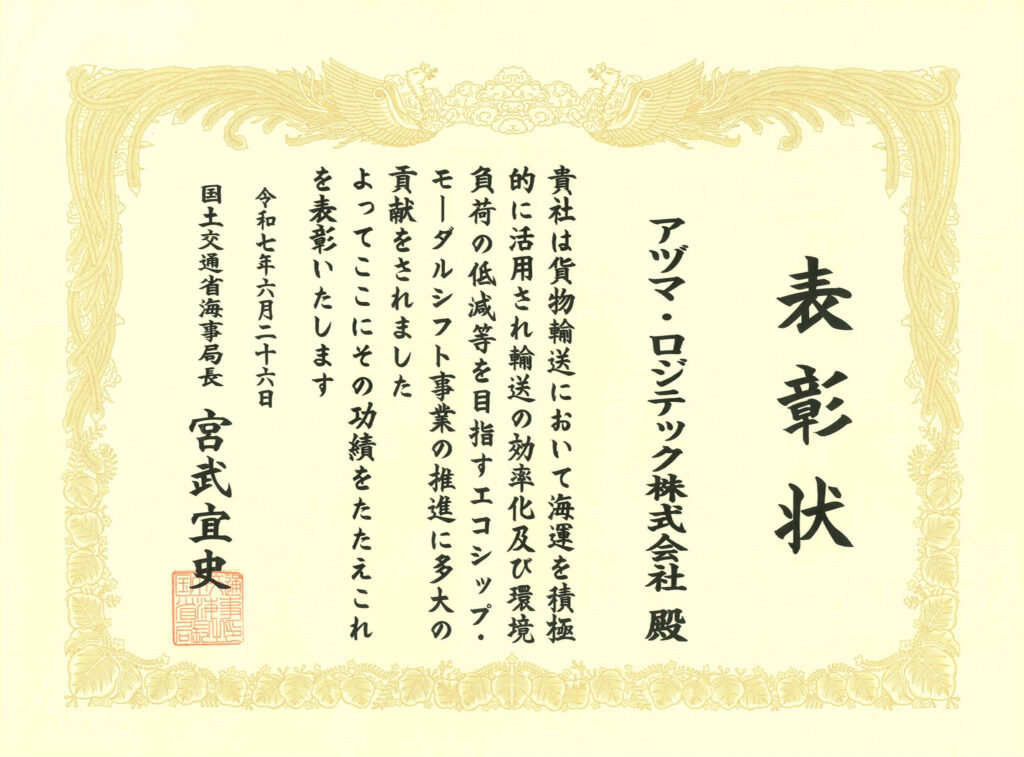 表彰状
アヅマ・ロジテック株式会社 殿
貴社は貨物輸送において海運を積極
的に活用され輸送の効率化及び環境
負荷の低減等を目指すエコシップ・
モーダルシフト事業の推進に多大の
貢献をされました
よってここにその功績をたたえこれ
を表彰いたします
令和七年六月二十六日
国土交通省海事局長 宮武宜史